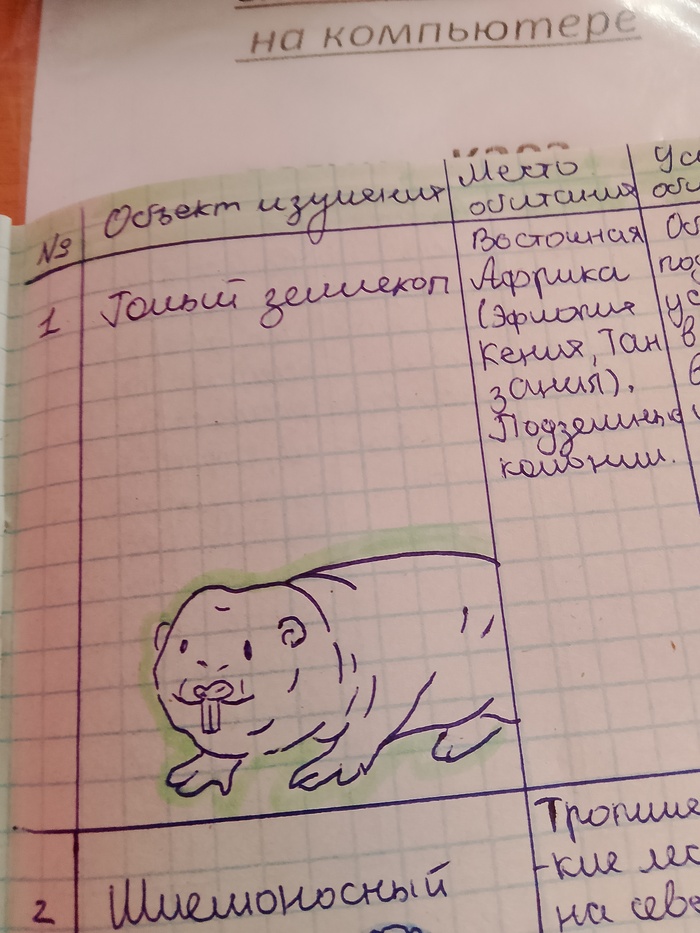 на компьютере
№
Объект изучения
Место
обитания
1
Голый землекоп
Восточная
Африка
(Эфиопия
Кения, Тан
зания).
Подземные
колонии.
2
Шлемоносный
Тропиче
-кие лес
на севе